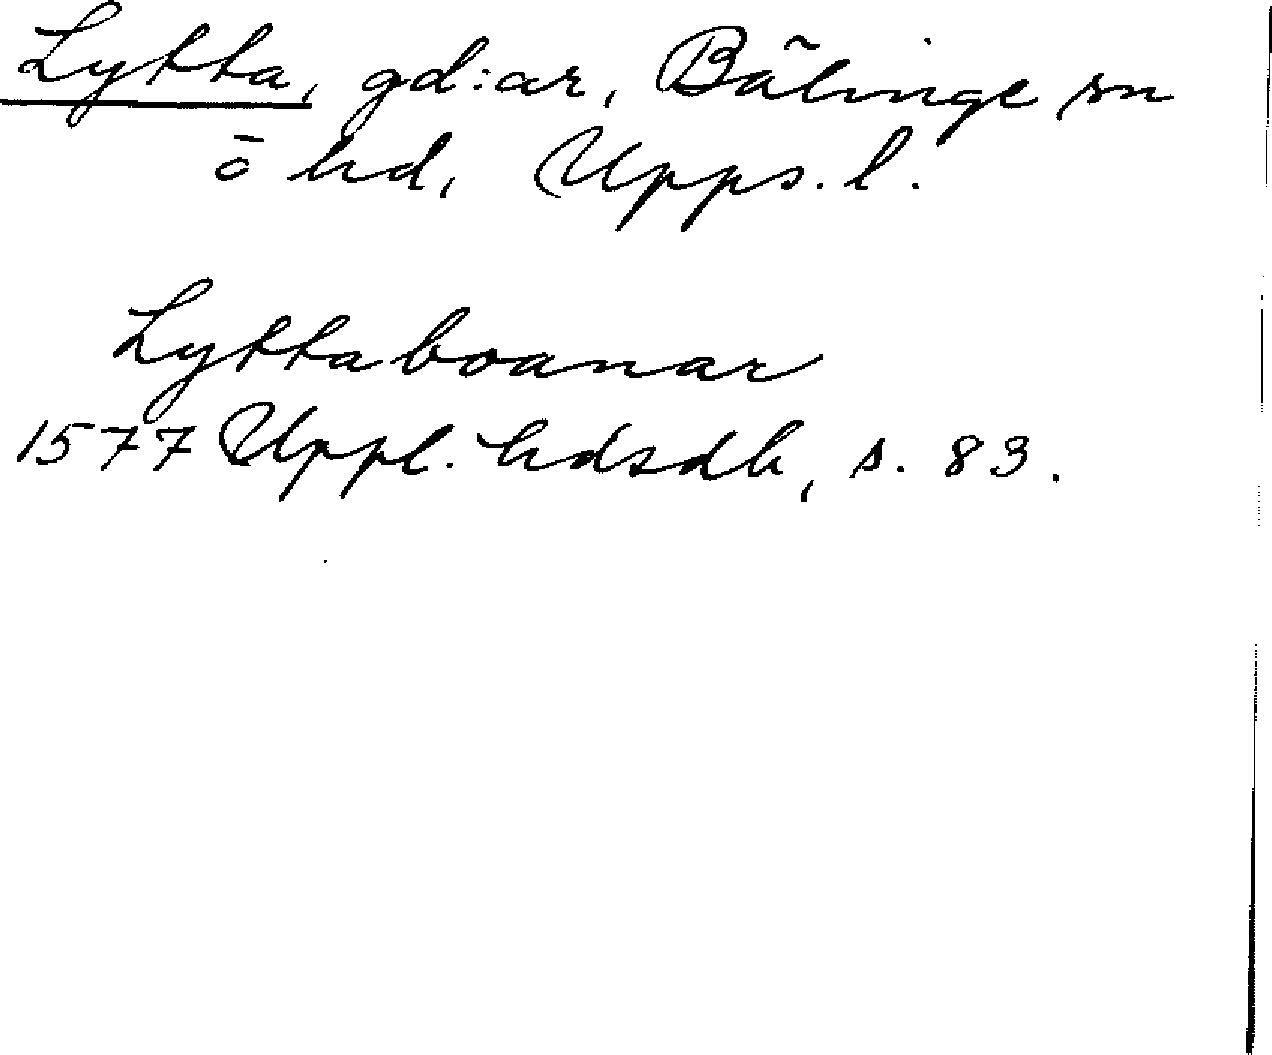 Lytta, gd:ar, Bälinge sn
o hd, Upps. l.
Lyttaboanar
1577 Uppl. hdsdb, s. 83.